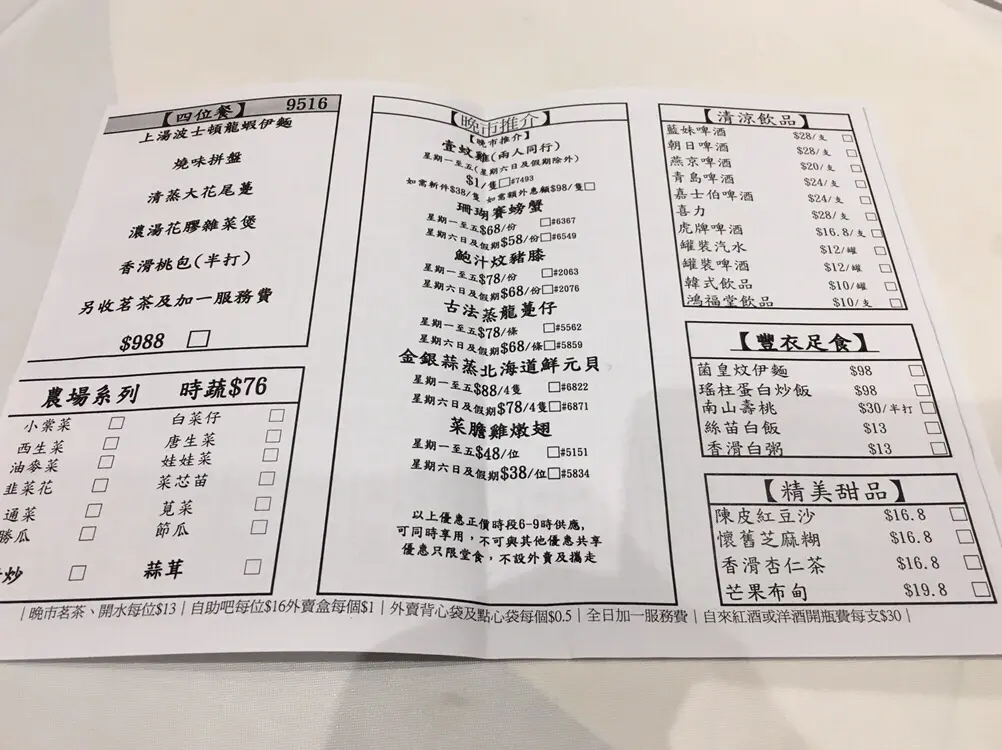 【四位餐】 9516
上湯波士頓龍蝦伊麵
燒味拼盤
清蒸大花尾躉
濃湯花膠雜菜煲
香滑桃包(半打)
另收茗茶及加一服務費
$988 □
農場系列 時蔬$76
小棠菜 □ 白菜仔 □
西生菜 □ 唐生菜 □
油麥菜 □ 娃娃菜 □
韭菜花 □ 菜芯苗 □
通菜 □ 莧菜 □
勝瓜 □ 節瓜 □
炒 □ 蒜茸 □
【晚市推介】
【晚市推介】
壹蚊雞(兩人同行)
星期一至五(星期六日及假期除外)
$1/隻□#7493
如需斬件$38/隻 如需額外惠顧$98/隻□
珊瑚賽螃蟹
星期一至五$68/份 □#6367
星期六日及假期$58/份□#6549
鮑汁炆豬膝
星期一至五$78/份 □#2063
星期六日及假期$68/份□#2076
古法蒸龍躉仔
星期一至五$78/條 □#5562
星期六日及假期$68/條□#5859
金銀蒜蒸北海道鮮元貝
星期一至五$88/4隻 □#6822
星期六日及假期$78/4隻□#6871
菜膽雞燉翅
星期一至五$48/位 □#5151
星期六日及假期$38/位□#5834
以上優惠正價時段6-9時供應,
可同時享用,不可與其他優惠共享
優惠只限堂食,不設外賣及攜走
【清涼飲品】
藍妹啤酒 $28/支 □
朝日啤酒 $28/支 □
燕京啤酒 $20/支 □
青島啤酒 $24/支 □
嘉士伯啤酒 $24/支 □
喜力 $28/支 □
虎牌啤酒 $16.8/支 □
罐裝汽水 $12/罐 □
罐裝啤酒 $12/罐 □
韓式飲品 $10/罐 □
鴻福堂飲品 $10/支 □
【豐衣足食】
菌皇炆伊麵 $98 □
瑤柱蛋白炒飯 $98 □
南山壽桃 $30/半打 □
絲苗白飯 $13 □
香滑白粥 $13 □
【精美甜品】
陳皮紅豆沙 $16.8 □
懷舊芝麻糊 $16.8 □
香滑杏仁茶 $16.8 □
芒果布甸 $19.8 □
|晚市茗茶、開水每位$13|自助吧每位$16外賣盒每個$1|外賣背心袋及點心袋每個$0.5|全日加一服務費|自來紅酒或洋酒開瓶費每支$30|